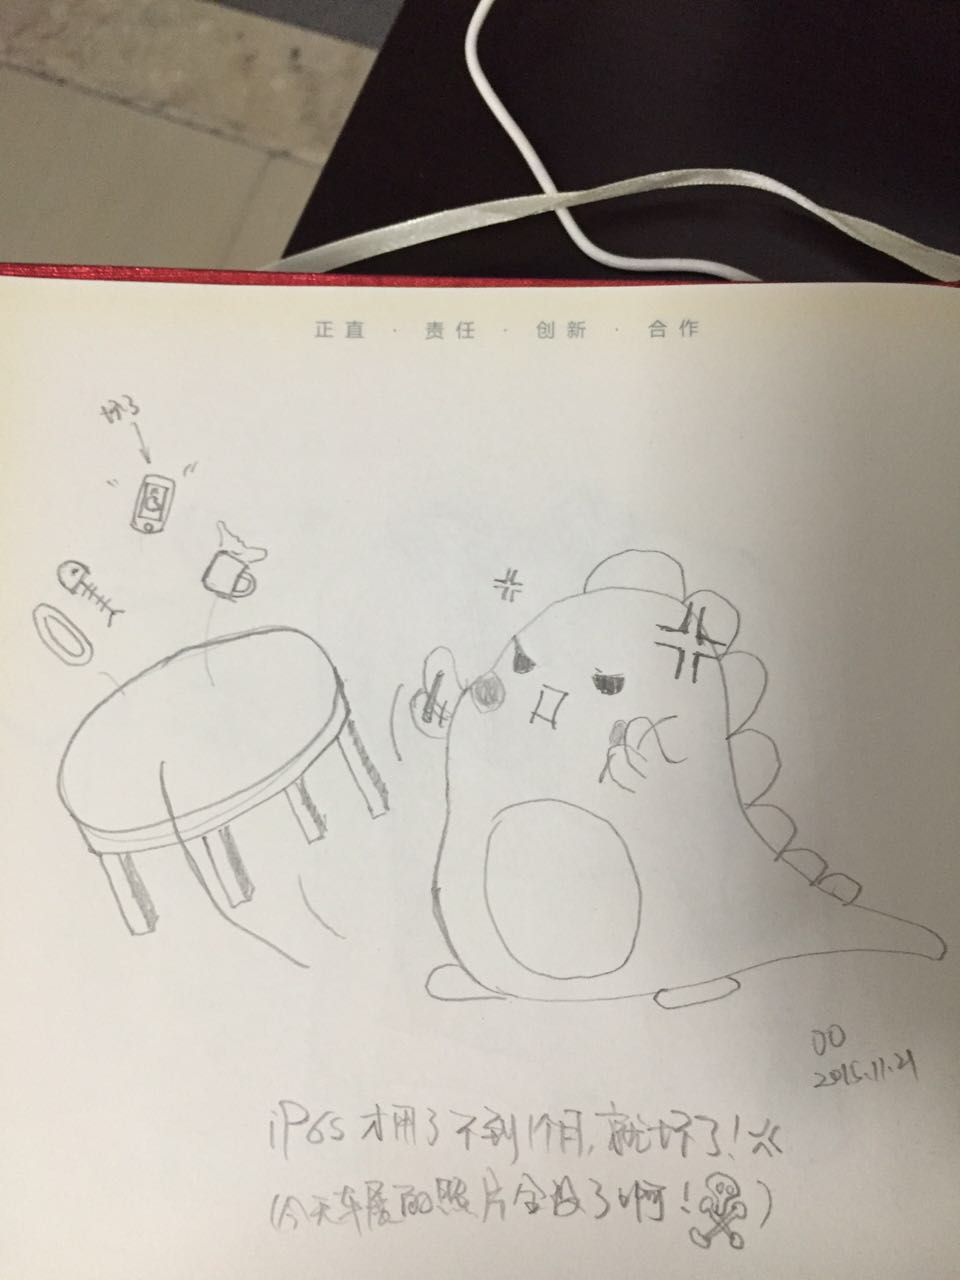 正直 · 责任 · 创新 · 合作
坏了
OO
2015.11.21
iP6s 才用了不到1个月,就坏了!
(今天车展的照片全没了啊!)